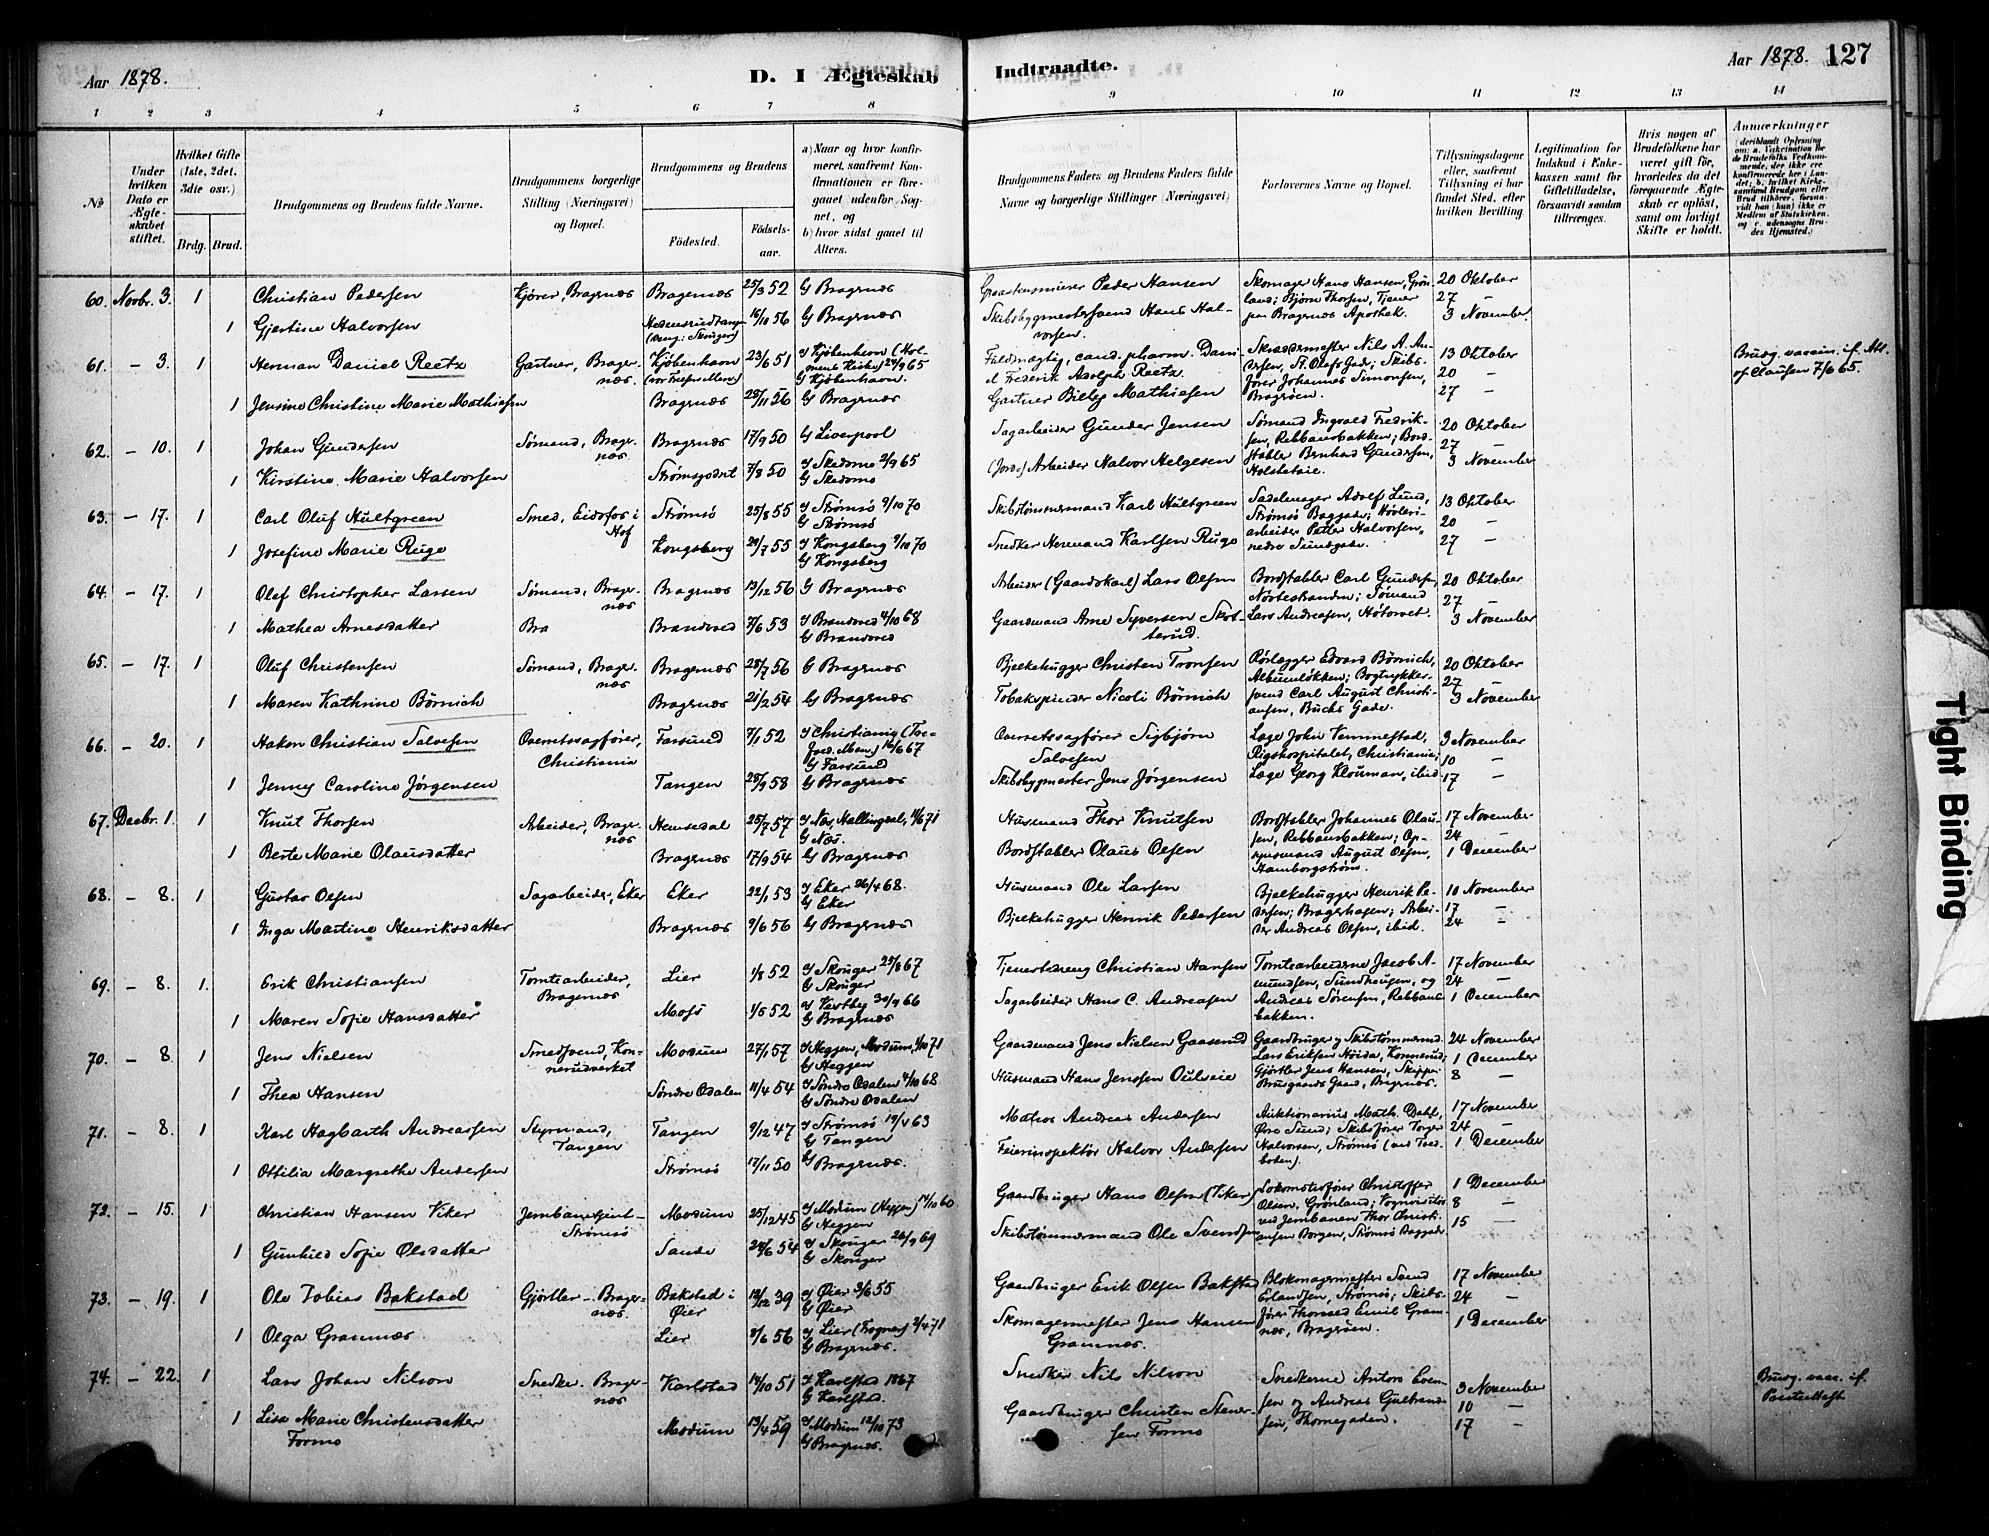 Aar 1878.
D. I Ægteskab
Indtraadte.
Aar 1878. 127
1 2 3 4 5 6 7 8 9 10 11 12 13 14
No
Under hvilken Dato er Ægteskabet stiftet.
Hvilket Gifte (1ste, 2det, 3die osv.)
Brdg. Brud.
Brudgommens og Brudens fulde Navne.
Brudgommens borgerlige Stilling (Næringsvei) og Bopæl.
Brudgommens og Brudens
Fødested.
Fødsels-aar.
a) Naar og hvor konfirmeret, saafremt Konfirmationen er foregaaet udenfor Sognet, og
b) hvor sidst gaaet til Alters.
Brudgommens Faders og Brudens Faders fulde Navne og borgerlige Stillinger (Næringsvei)
Forlovernes Navne og Bopæl.
Tillysningsdagene eller, saafremt Tillysning ei har fundet Sted, efter hvilken Bevilling
Legitimation for Indskud i Enkekassen samt for Giftetilladelse, forsaavidt saadan tiltrænges.
Hvis nogen af Brudefolkene har været gift før, hvorledes da det foregaaende Ægteskab er opløst, samt om lovligt Skifte er holdt.
Anmærkninger
(deriblandt Oplysning om: a. Vakcination for de Brudefolks Vedkommende, der ikke ere konfirmerede her i Landet; b. hvilket Kirkesamfund Brudgom eller Brud tilhører, forsaavidt han (hun) ikke er Medlem af Statskirken, og c. udensogns Brudes Hjemsted.)
60. Novbr. 3. 1 Christian Pedersen Kjører, Bragernæs Bragernæs 25/3 52 G Bragernæs Peder Hansen Skomager Hans Hansen, Grønland; Bjørn Thorsen, Tjener paa Bragernæs Apothek. 20 Oktober 27 – 3 November
1 Gjertine Halvorsen 16/10 56 G Bragernæs Skibsbygmestersvend Hans Halvorsen
61. – 3. 1 Herman Daniel Reetz Gartner, Bragernæs. Kjøbenhavn 23/6 51 I Kjøbenhavn (Holmens Kirke) 24/9 65 G Kjøbenhavn. Fuldmægtig, cand. pharm. Daniel Frederik Adolph Reetz Skræddermester Nils A. Andersen, St. Olafs Gade; Skibsfører Johannes Simonsen, Bragerøen. 13 Oktober 20 – 27 – Brudg. vaccin. if. Att. af Clausen 7/6 65.
1 Jensine Christine Marie Mathiesen Bragernæs 28/11 56 G Bragernæs Gartner Mathiesen
62. – 10. 1 Johan Gundersen Sømand, Bragernæs Bragernæs 17/9 50 G Liverpool Sagarbeider Gunder Jensen Sømand Ingvald Fredriksen, Rebbansbakken; Bordstabler Bernhard Gundersen, 20 Oktober 27 – 3 November
1 Kirstine Marie Halvorsen Strømsgodset 7/8 50 I Skedsmo 2/9 65 G Skedsmo (Jord-) Arbeider Halvor Helgesen
63. – 17. 1 Carl Oluf Hultgreen Smed, Eidsfos i Hof Strømsø 25/8 55 I Strømsø 9/10 70 G Strømsø Skibstømmermand Karl Hultgreen Sadelmager Adolf Lund, Strømsø Baggade; Høvleriarbeider Petter Halvorsen, nedre Sundgade. 13 Oktober 20 – 27 –
1 Josefine Marie Ruge Kongsberg 29/7 55 I Kongsberg 9/10 70 G Kongsberg Snedker Hermand Karlsen Ruge
64. – 17. 1 Olaf Christopher Larsen Sømand, Bragernæs Bragernæs 13/12 56 G Bragernæs Arbeider (Gaardskarl) Lars Olsen Bordstabler Carl Gundersen, Nørtestranden; Sømand Lars Andreasen, Høtorvet. 20 Oktober 27 – 3 November
1 Mathea Arnesdatter Bra Brandved 7/6 53 I Brandved 4/10 68 G Brandved Gaardmand Arne Syversen
65. – 17. 1 Oluf Christensen Sømand, Bragernæs Bragernæs 28/7 56 G Bragernæs Bjelkehugger Christen Tronsen Rørlægger Edvard Børnich, Albumløkken; Bogtrykkersvend Carl August Christiansen, Buchs Gade. 20 Oktober 27 – 3 November
1 Maren Kathrine Børnich Bragernæs 21/2 54 G Bragernæs Tobakspinder Nicolai Børnich
66. – 20. 1 Hakon Christian Salvesen Overretssagfører, Christiania Farsund 7/1 52 I Christiania 16/6 67 G Farsund Overretssagfører Sigbjørn Salvesen Læge John Vemmestad, Rigshospitalet, Christiania; Læge Georg Klouman, ibid 3 November 10 – 17 –
1 Jenny Caroline Jørgensen Tangen 28/9 58 G Bragernæs Skibsbygmester Jens Jørgensen
67. Decbr. 1. 1 Knut Thorsen Arbeider, Bragernæs Hemsedal 25/7 57 I Næs, Hallingdal, 11/6 71 G Næs. Husmand Thor Knutsen Bordstabler Johannes Olausen, Rebbansbakken; Opsynsmand August Olsen, Hamborgstrøm. 17 November 24 – 1 December
1 Berte Marie Olausdatter Bragernæs 17/9 54 G Bragernæs Bordstabler Olaus Olsen
68. – 8. 1 Gustav Olsen Sagarbeider, Eker Eker 22/1 53 I Eker 26/4 68. G Eker Husmand Ole Larsen Bjelkehugger Henrik Pedersen; Bragerhagen; Arbeider Andreas Olsen, ibid. 10 November 17 – 24 –
1 Inga Martine Henriksdatter Bragernæs 9/6 56 G Bragernæs Bjelkehugger Henrik Pedersen
69. – 8. 1. Erik Christiansen Tomtearbeider, Bragernæs Lier 1/8 52 I Skouger 25/8 67 G Skouger Tjenestedreng Christian Hansen Tomtearbeiderne Jacob Amundsen, Sundhaugen, og Andreas Sørensen, Rebbansbakken. 17 November 24 – 1 December
1 Maren Sofie Hansdatter Moss 1/5 52 I Vestby 30/9 66 G Bragernæs Sagarbeider Hans C. Andreasen
70. – 8 1 Jens Nielsen Smedsvend, Konnerudverket Modum 27/1 57 I Heggen, Modum, 1/10 71 G Heggen Gaardmand Jens Nielsen Gaaserud Gaardbruger og Skibstømmermd. Lars Eriksen Høida, Konnerud; Gjørtler Jens Hansen, Gaard, Bragernæs. 24 November 1 December 8 –
1 Thea Hansen Søndre Odalen 11/4 54 I Søndre Odalen 4/10 68 G Søndre Odalen Husmand Hans Jenssen
71. – 8. 1 Karl Hagbarth Andreassen Styrmand, Tangen Tangen 9/12 47 I Strømsø 19/4 63 G Tangen Matros Andreas Andersen Auktionarius Math. Dahl, Øvre Sund; Skibsfører Torger Halvorsen, Strømsø 17 November 24 – 1 December
1 Ottilia Margrethe Andersen Strømsø 17/11 50 G Bragernæs. Feierinspektør Halvor Andersen
72. – 15. 1 Christian Hansen Viker Strømsø Modum 25/12 45 I Modum (Heggen) 14/10 60 G Heggen Gaardbruger Hans Olsen (Viker) Lokomotivfører Christoffer Olsen, Grønland; Vognvisitør ved Jernbanen Thor Christiansen Borgen, Strømsø Baggade. 1 December 8 – 15 –
1 Gunhild Sofie Olsdatter Sande 24/6 54 I Skouger 26/9 69 G Skouger Skibstømmermand Ole Svendsen
73. – 19. 1 Ole Tobias Bakstad Gjørtler – Bragernæs. Bakstad i Øier 12/12 39 I Øier 3/6 55 G Øier Gaardbruger Erik Olsen Bakstad Blokmagermester Svend Erlandsen, Strømsø; Skibsfører Thomsed Emil Grannæs, Bragerøen. 17 November 24 – 1 December
1 Olga Grannæs Lier 8/6 56 I Lier (Frogner) 2/4 71 G Bragernæs. Skomagermester Jens Hansen Grannæs.
74. – 22. 1 Lars Johan Nilson Snedker. Bragernæs Karlstad 14/10 51 I Karlstad 1867 G Karlstad. Snedker Nils Nilson Snedkerne Anton Evensen og Andreas Gulbrandsen, Thornegaden. 3 November 10 – 17 – Brudg. vacc. if. Præsteattest
1 Lisa Marie Christensdatter Formo Modum 13/4 59 I Modum 12/10 73 G Bragernæs. Gaardbruger Christen Steensen Formo
Tight Binding